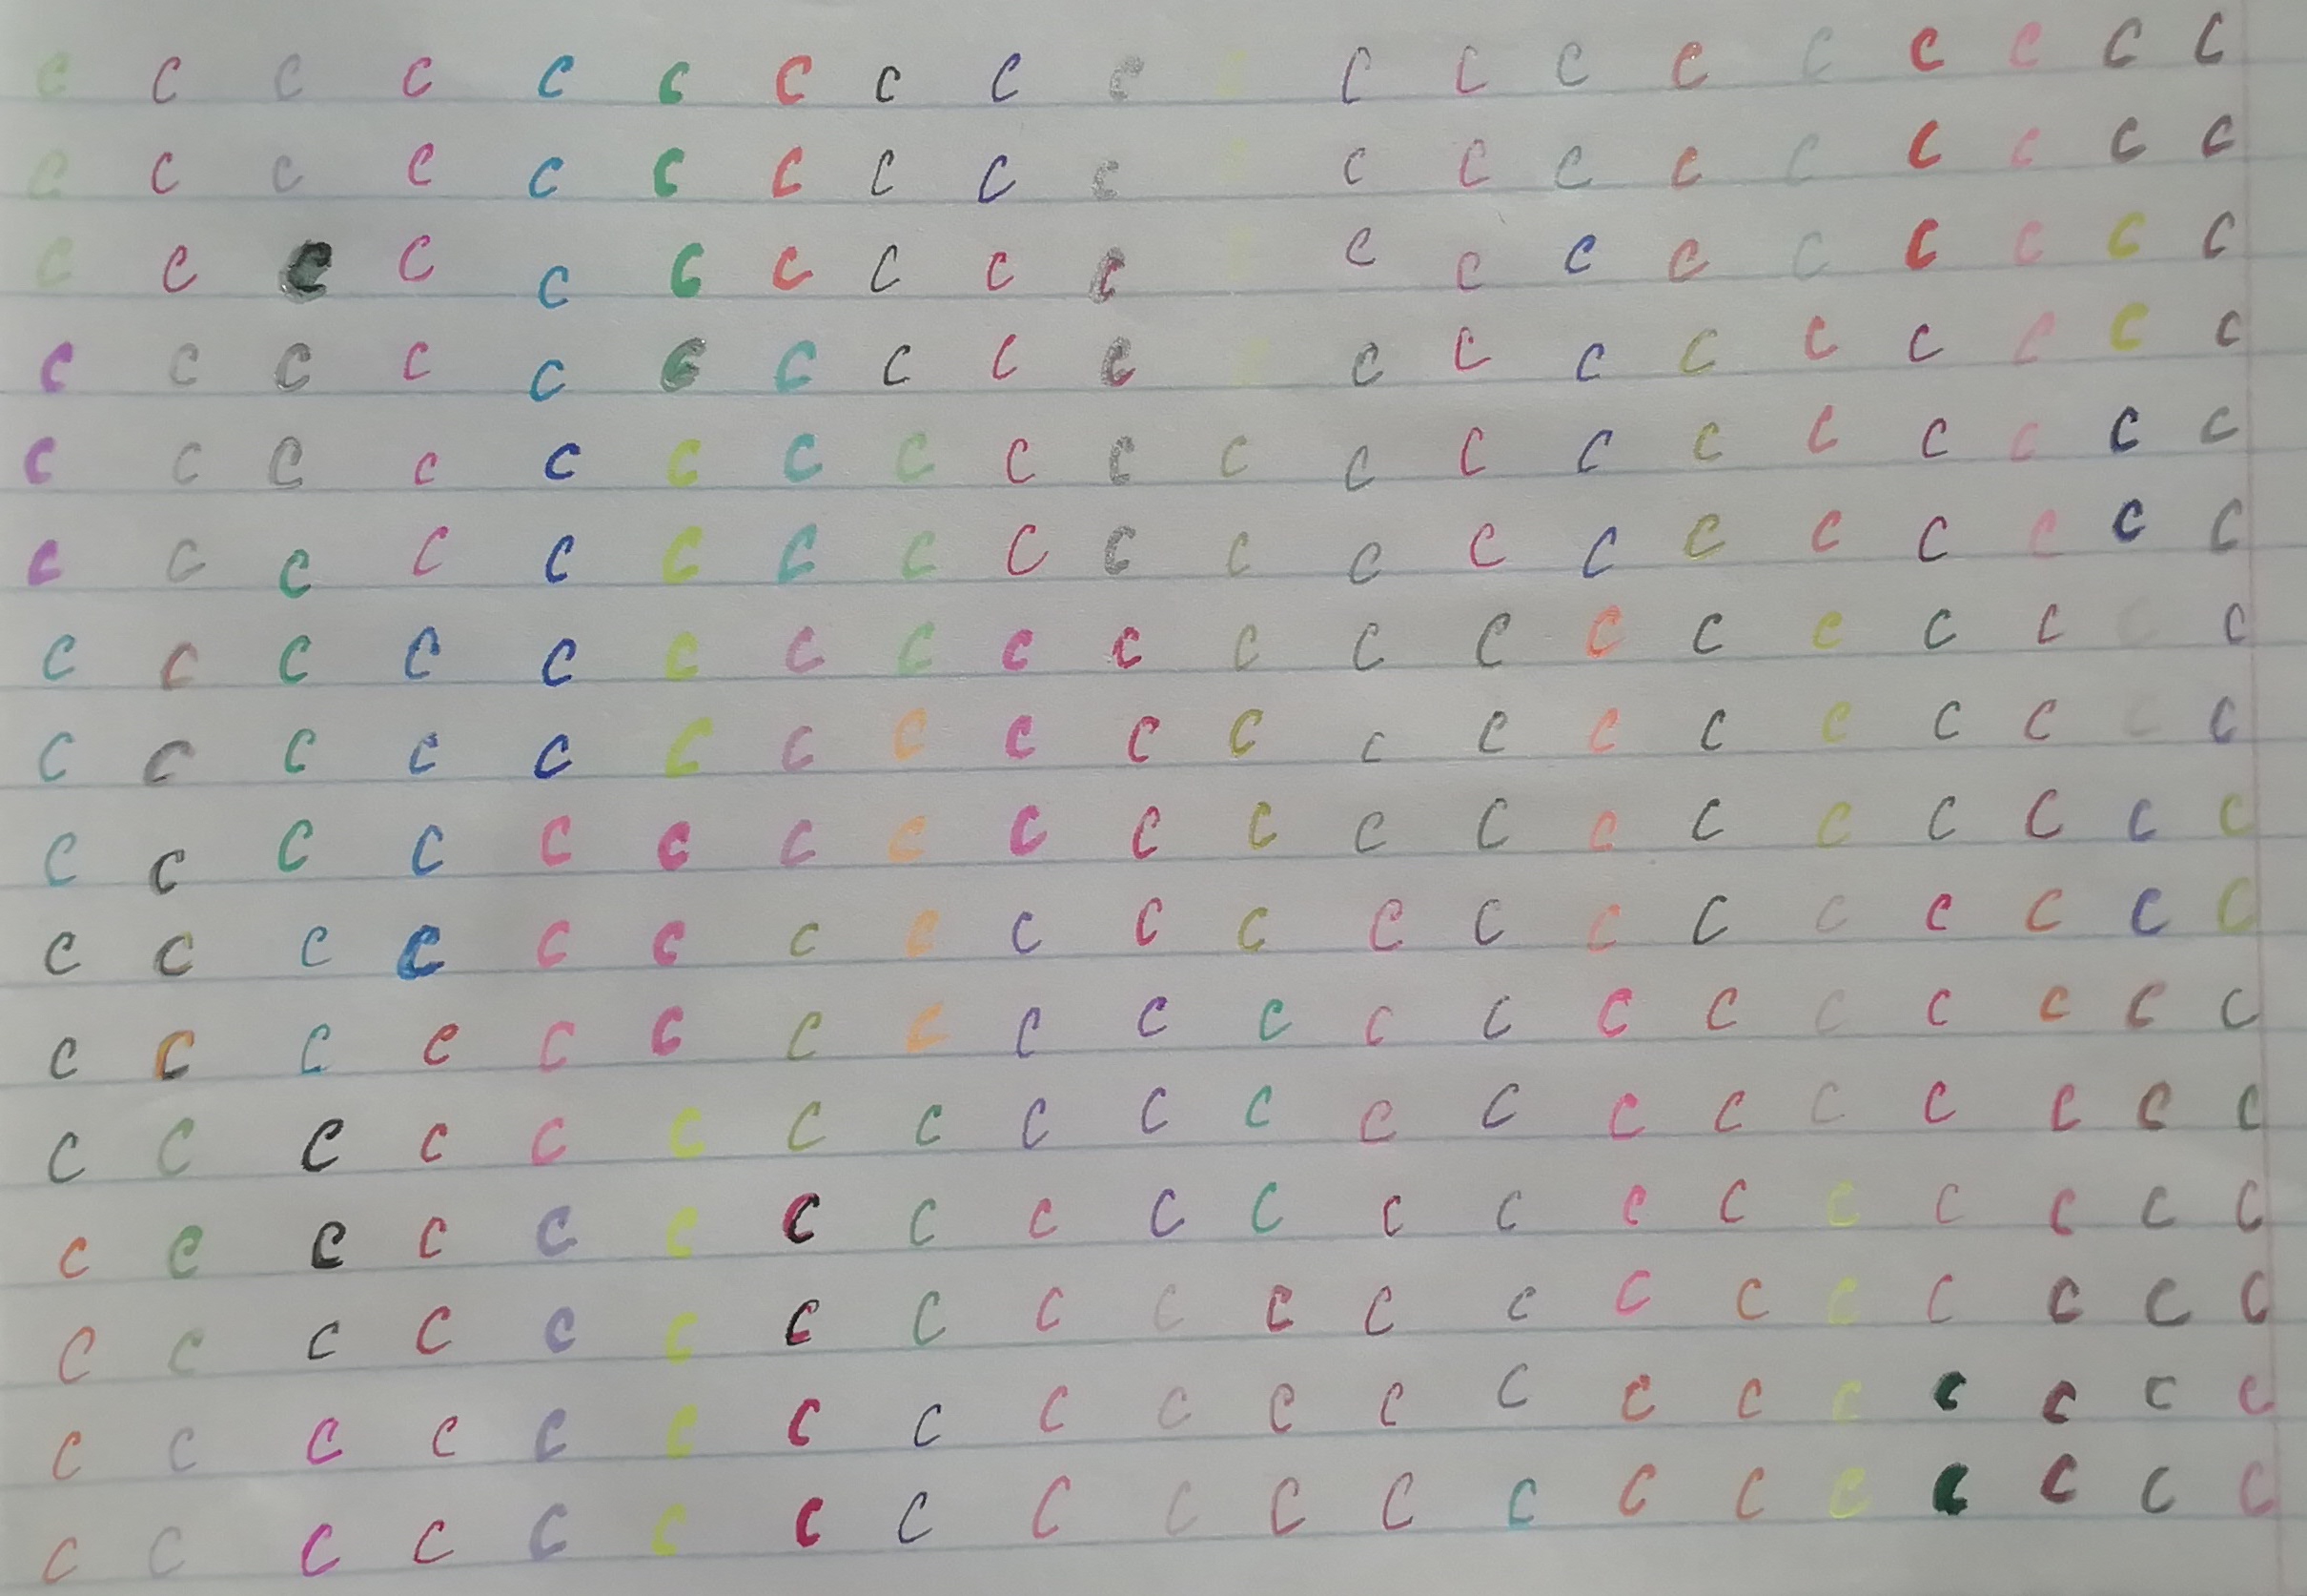 c c c c c c c c c c c c c c c c c c c c
c c c c c c c c c c c c c c c c c c c c
c c c c c c c c c c c c c c c c c c c c
c c c c c c c c c c c c c c c c c c c c
c c c c c c c c c c c c c c c c c c c c
c c c c c c c c c c c c c c c c c c c c
c c c c c c c c c c c c c c c c c c c c
c c c c c c c c c c c c c c c c c c c c
c c c c c c c c c c c c c c c c c c c c
c c c c c c c c c c c c c c c c c c c c
c c c c c c c c c c c c c c c c c c c c
c c c c c c c c c c c c c c c c c c c c
c c c c c c c c c c c c c c c c c c c c
c c c c c c c c c c c c c c c c c c c c
c c c c c c c c c c c c c c c c c c c c
c c c c c c c c c c c c c c c c c c c c